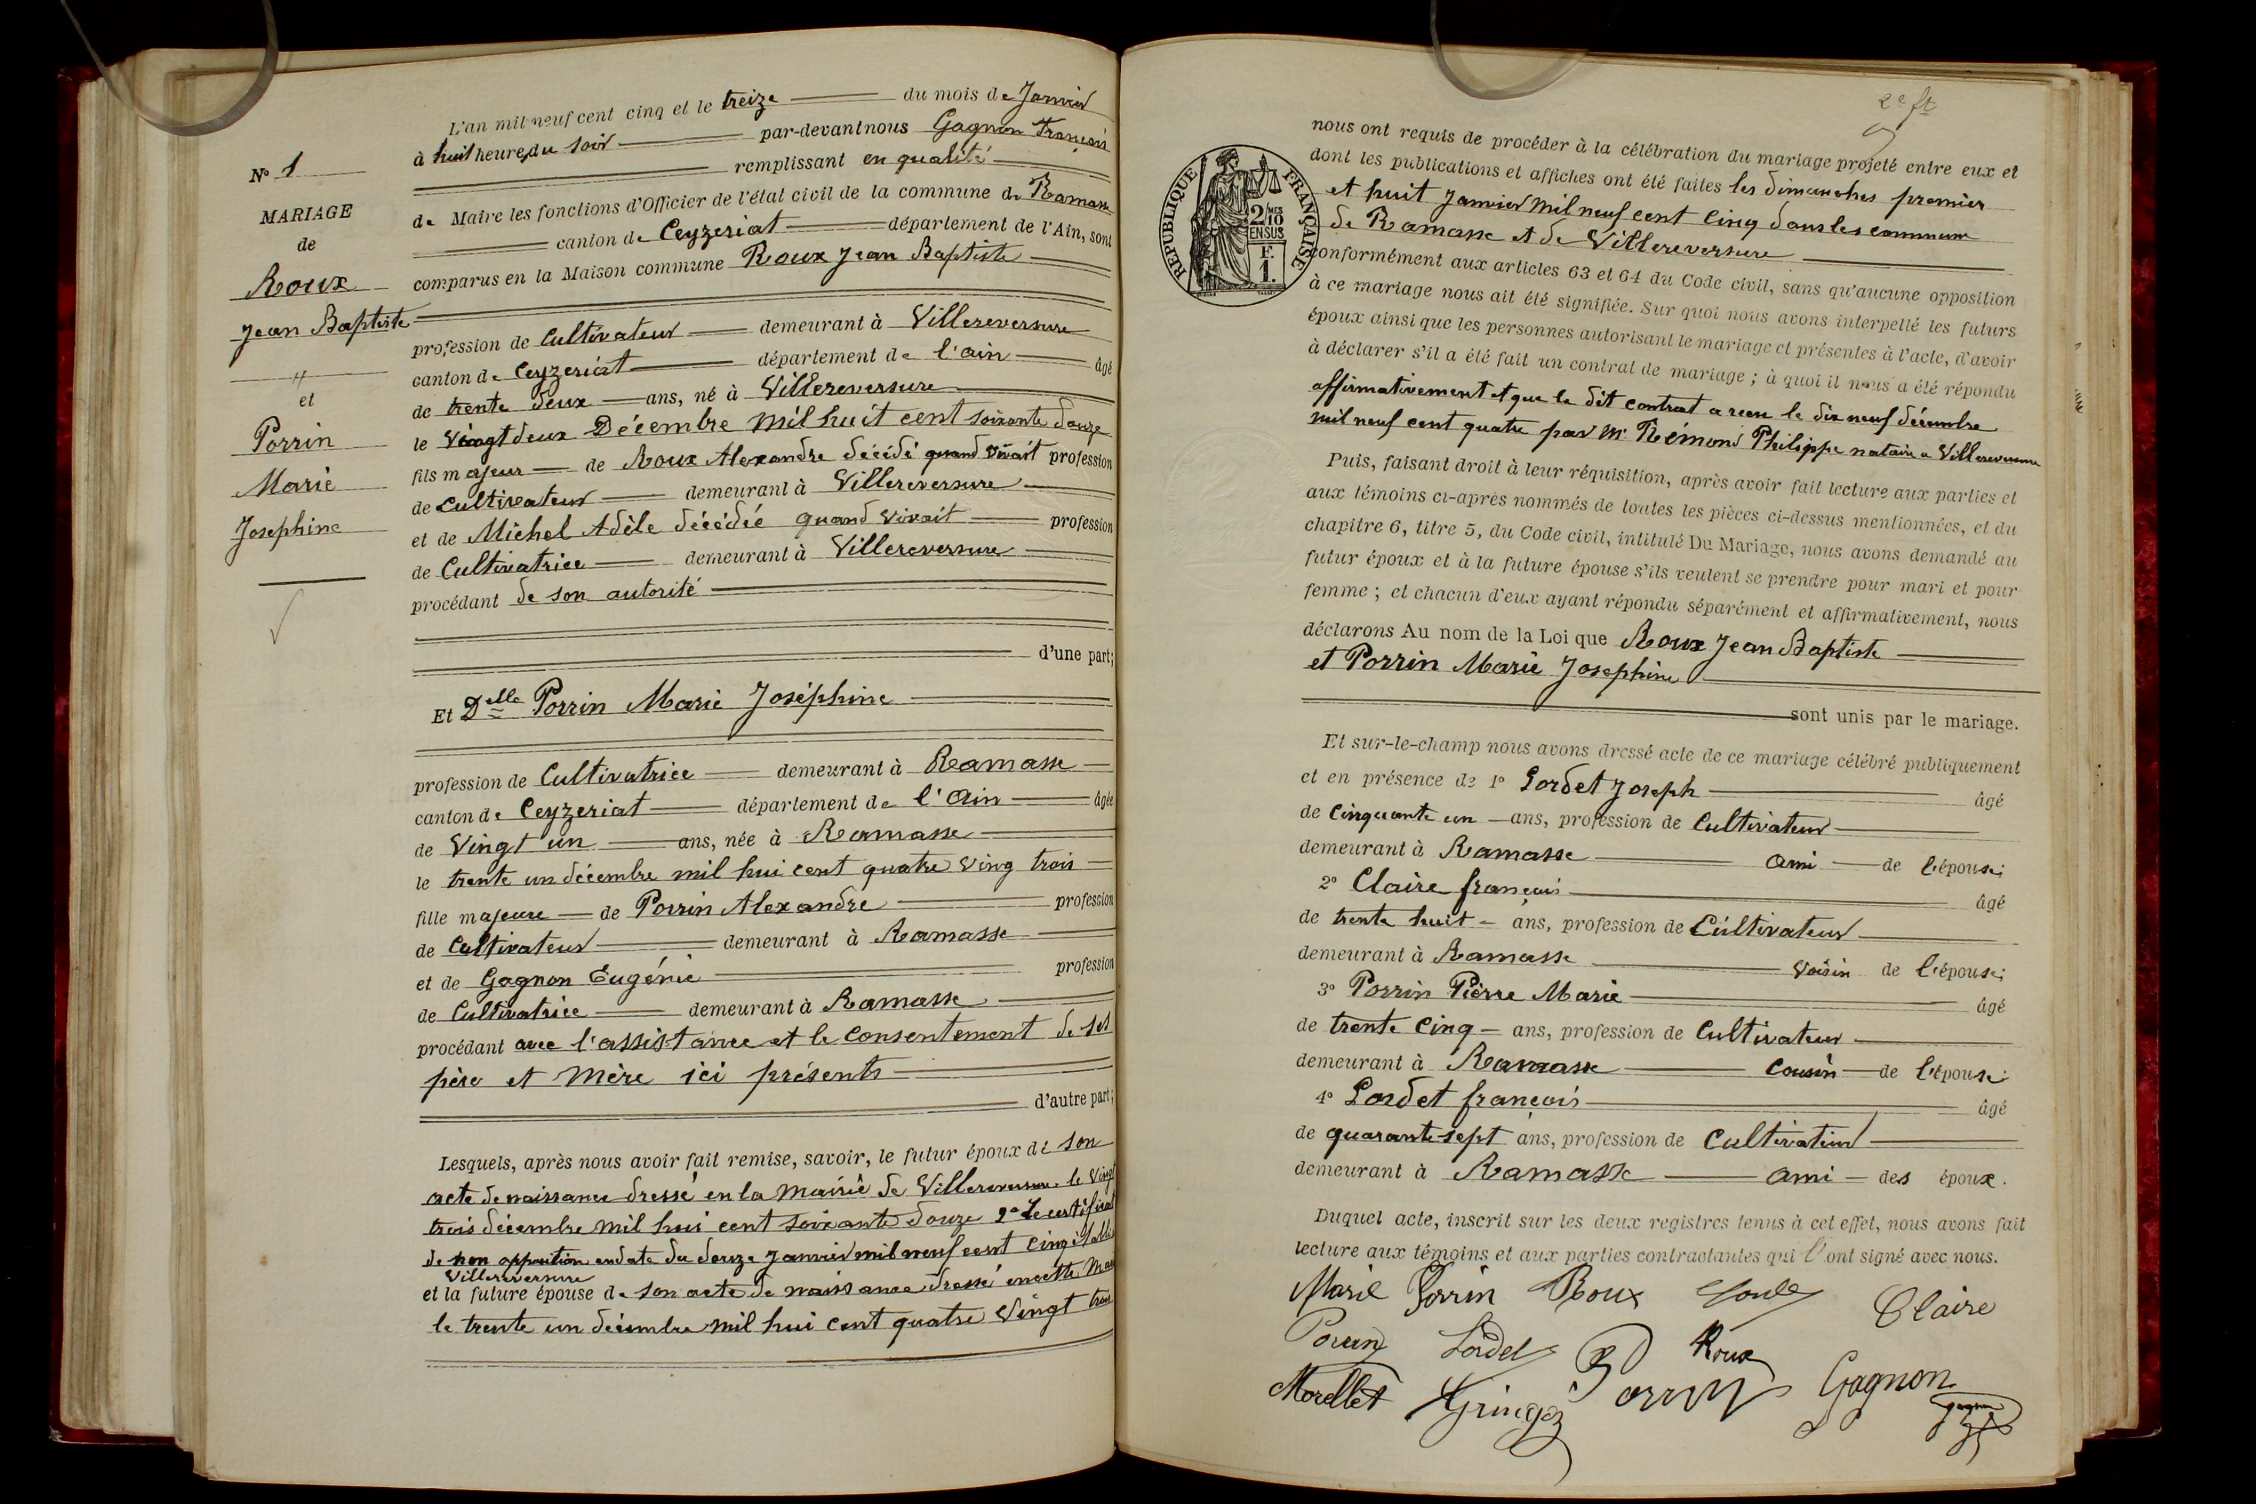 N° 1
MARIAGE
de
Roux
Jean Baptiste
et
Porrin
Marie
Josephine
L'an mil neuf cent cinq et le treize du mois de Janvier
à huit heures du soir par-devant nous Gagnon François
remplissant en qualité
de Maire les fonctions d'Officier de l'état civil de la commune de Ramasse
canton de Ceyzeriat département de l'Ain, sont
comparus en la Maison commune Roux Jean Baptiste
profession de Cultivateur demeurant à Villereversure
canton de Ceyzeriat département de l'ain âgé
de trente deux ans, né à Villereversure
le vingt deux Décembre mil huit cent soixante douze
fils majeur de Roux Alexandre décédé quand vivait profession
de Cultivateur demeurant à Villereversure
et de Michel Adèle décédée quand vivait profession
de Cultivatrice demeurant à Villereversure
procédant de son autorité
d'une part;
Et Delle Porrin Marie Joséphine
profession de Cultivatrice demeurant à Ramasse
canton de Ceyzeriat département de l'Ain âgée
de Vingt un ans, née à Ramasse
le trente un décembre mil hui cent quatre ving trois
fille majeure de Porrin Alexandre profession
de Cultivateur demeurant à Ramasse
et de Gagnon Eugénie profession
de Cultivatrice demeurant à Ramasse
procédant avec l'assistance et le consentement de ses
père et mère ici présents
d'autre part;
Lesquels, après nous avoir fait remise, savoir, le futur époux de son
acte de naissance dressé en la mairie de Villereversure le vingt
trois décembre mil hui cent soixante douze 2° Le certificat
de non opposition en date du douze Janvier mil neuf cent cinq
Villereversure
et la future épouse de son acte de naissance dressé en cette
le trente un décembre mil hui cent quatre vingt trois
2e ft
RÉPUBLIQUE FRANÇAISE
2/10 MES
EN SUS
F.
1.
nous ont requis de procéder à la célébration du mariage projeté entre eux et
dont les publications et affiches ont été faites les dimanches premier
et huit Janvier mil neuf cent cinq dans les commune
de Ramasse et de Villereversure
conformément aux articles 63 et 64 du Code civil, sans qu'aucune opposition
à ce mariage nous ait été signifiée. Sur quoi nous avons interpellé les futurs
époux ainsi que les personnes autorisant le mariage et présentes à l'acte, d'avoir
à déclarer s'il a été fait un contrat de mariage ; à quoi il nous a été répondu
affirmativement et que le dit contrat a reçu le dix neuf décembre
mil neuf cent quatre par Me Rémond Philippe notaire a Villereversure
Puis, faisant droit à leur réquisition, après avoir fait lecture aux parties et
aux témoins ci-après nommés de toutes les pièces ci-dessus mentionnées, et du
chapitre 6, titre 5, du Code civil, intitulé Du Mariage, nous avons demandé au
futur époux et à la future épouse s'ils veulent se prendre pour mari et pour
femme ; et chacun d'eux ayant répondu séparément et affirmativement, nous
déclarons Au nom de la Loi que Roux Jean Baptiste
et Porrin Marie Josephine
sont unis par le mariage.
Et sur-le-champ nous avons dressé acte de ce mariage célébré publiquement
et en présence de 1° Lordet Joseph âgé
de Cinquante un ans, profession de Cultivateur
demeurant à Ramasse ami de l'épouse;
2° Claire françois âgé
de trente huit ans, profession de Cultivateur
demeurant à Ramasse voisin de l'épouse;
3° Porrin Pierre Marie âgé
de trente cinq ans, profession de Cultivateur
demeurant à Ramasse Cousin de l'épouse;
4° Lordet françois âgé
de quarante-sept ans, profession de Cultivateur
demeurant à Ramasse ami des époux.
Duquel acte, inscrit sur les deux registres tenus à cet effet, nous avons fait
lecture aux témoins et aux parties contractantes qui l'ont signé avec nous.
Marie Porrin Roux Claire
Porrin Lordet Roux
Morellet Gringoz Porrin Gagnon
Gagnon